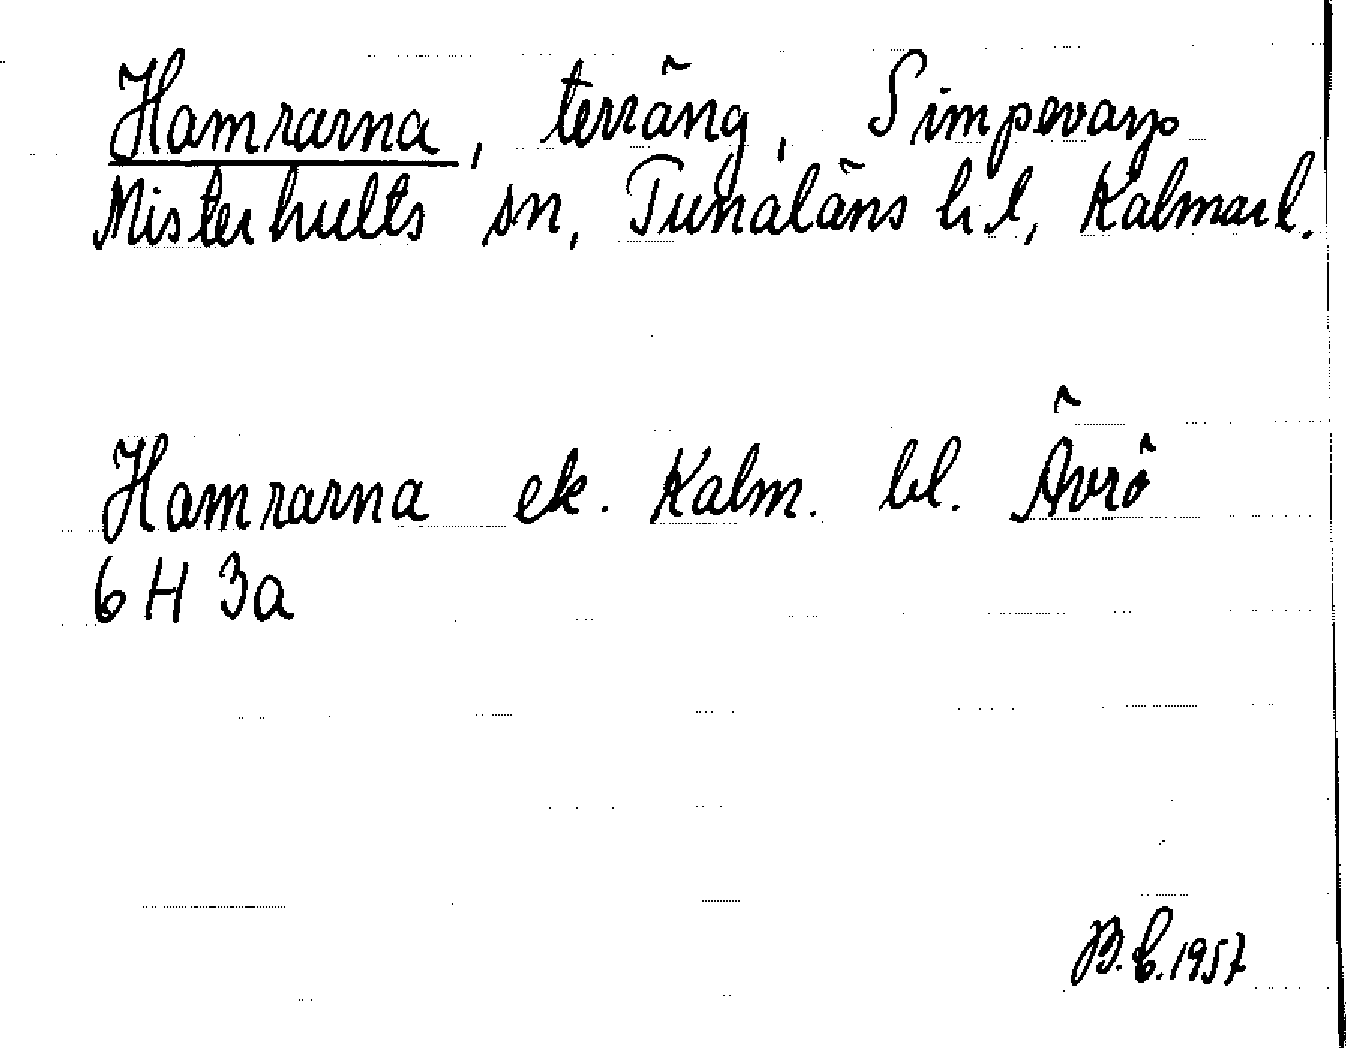 Hamrarna, terräng, Simpevarp
Misterhults sn, Tunaläns hd, Kalmar l.
Hamrarna ek. Kalm. bl. Ävrö
6H 3a
B.E.1957